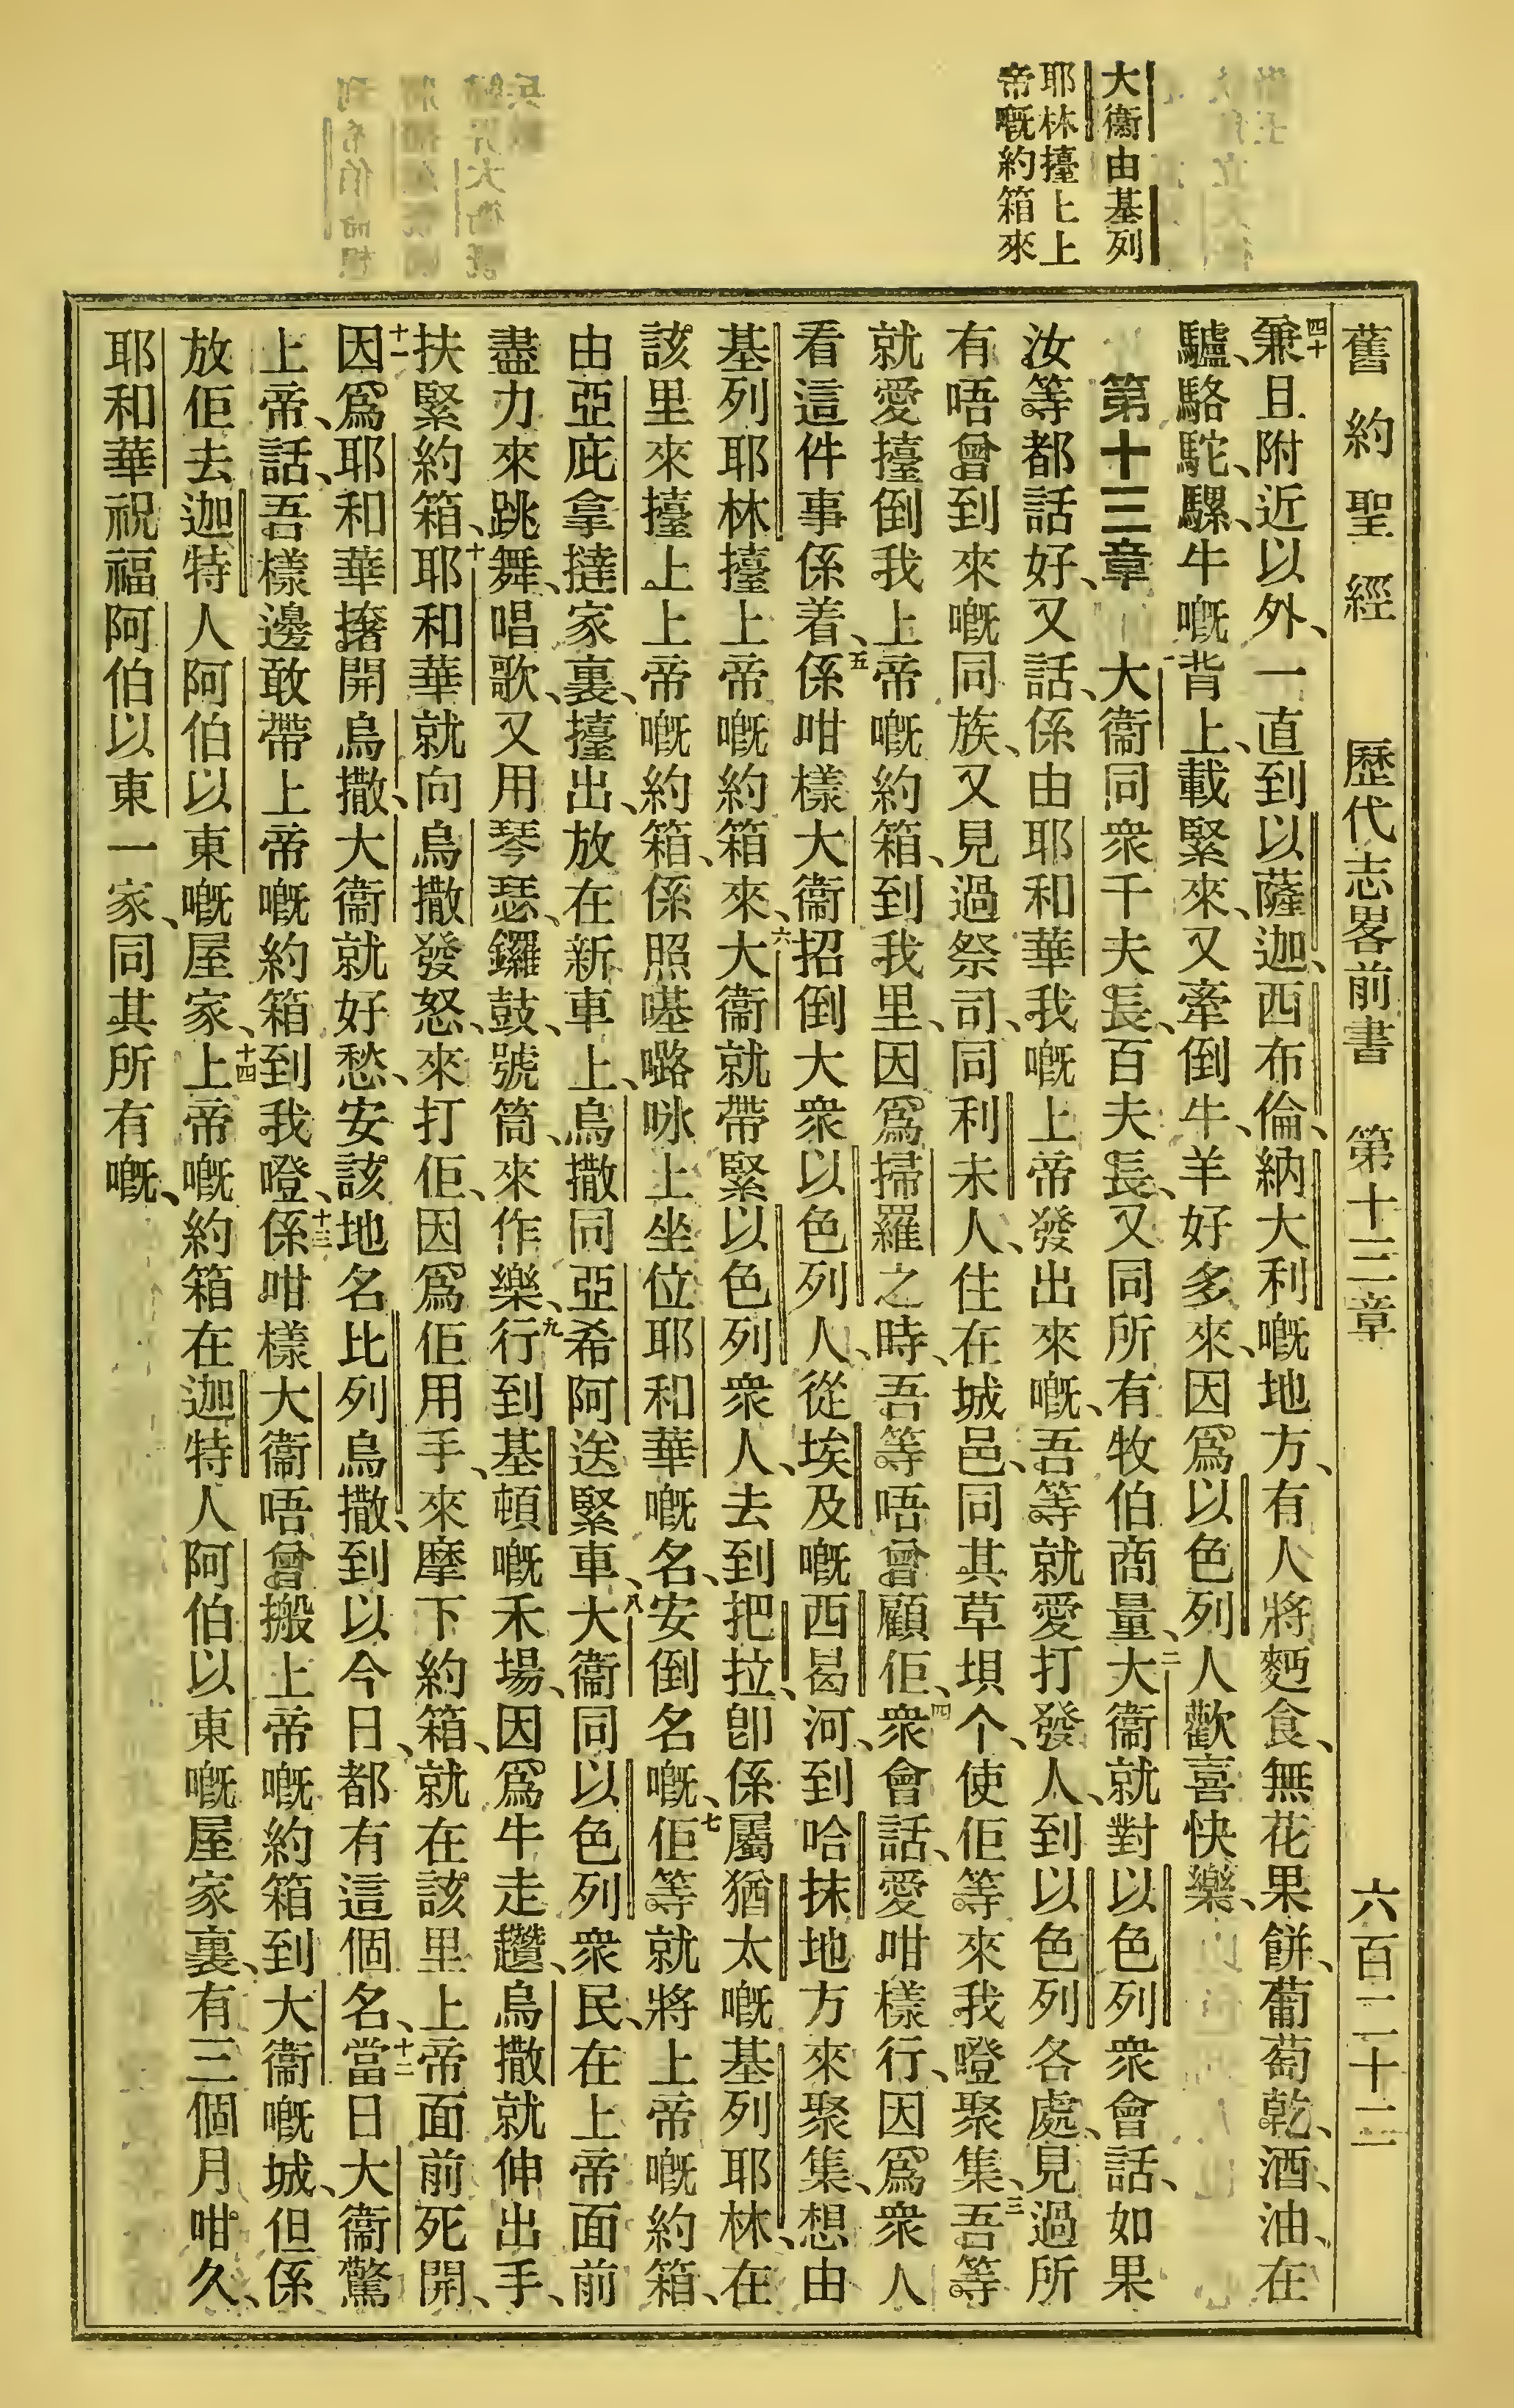 大衞由基列
耶林擡上上
帝嘅約箱來
舊約聖經 歷代志畧前書 第十三章 六百二十二
四十兼且附近以外、一直到以薩迦、西布倫、納大利嘅地方、有人將麫食、無花果餅、葡萄乾、酒、油、在
驢、駱駝、騾、牛嘅背上、載緊來、又牽倒牛、羊好多來、因爲以色列人歡喜快樂、
第十三章 一大衞同衆千夫長、百夫長、又同所有牧伯商量、二大衞就對以色列衆會話、如果
汝等都話好、又話、係由耶和華我嘅上帝發出來嘅、吾等就愛打發人、到以色列各處、見過所
有唔曾到來嘅同族、又見過祭司、同利未人、住在城邑、同其草垻个、使佢等來我嶝聚集、三吾等
就愛擡倒我上帝嘅約箱、到我里、因爲掃羅之時、吾等唔曾顧佢、四衆會話、愛咁樣行、因爲衆人
看這件事係着、五係咁樣大衞招倒大衆以色列人、從埃及嘅西曷河、到哈抹地方來聚集、想由
基列耶林擡上帝嘅約箱來、六大衞就帶緊以色列衆人、去到把拉、卽係屬猶太嘅基列耶林、在
該里來擡上上帝嘅約箱、係照𠸝嚕咏上坐位耶和華嘅名、安倒名嘅、七佢等就將上帝嘅約箱、
由亞庇拿撻家裏、擡出、放在新車上、烏撒同亞希阿送緊車、八大衞同以色列衆民、在上帝面前
盡力來跳舞、唱歌、又用琴瑟、鑼鼓、號筒、來作樂、九行到基頓嘅禾場、因爲牛走趲、烏撒就伸出手、
扶緊約箱、十耶和華就向烏撒發怒、來打佢、因爲佢用手、來摩下約箱、就在該里上帝面前死開、
十一因爲耶和華撦開烏撒、大衞就好愁、安該地名比列烏撒、到以今日、都有這個名、十二當日大衞驚
上帝、話、吾樣邊敢帶上帝嘅約箱到我嶝、十三係咁樣大衞唔曾搬上帝嘅約箱到大衞嘅城、但係
放佢去迦特人阿伯以東嘅屋家、十四上帝嘅約箱在迦特人阿伯以東嘅屋家裏、有三個月咁久、
耶和華祝福阿伯以東一家、同其所有嘅、